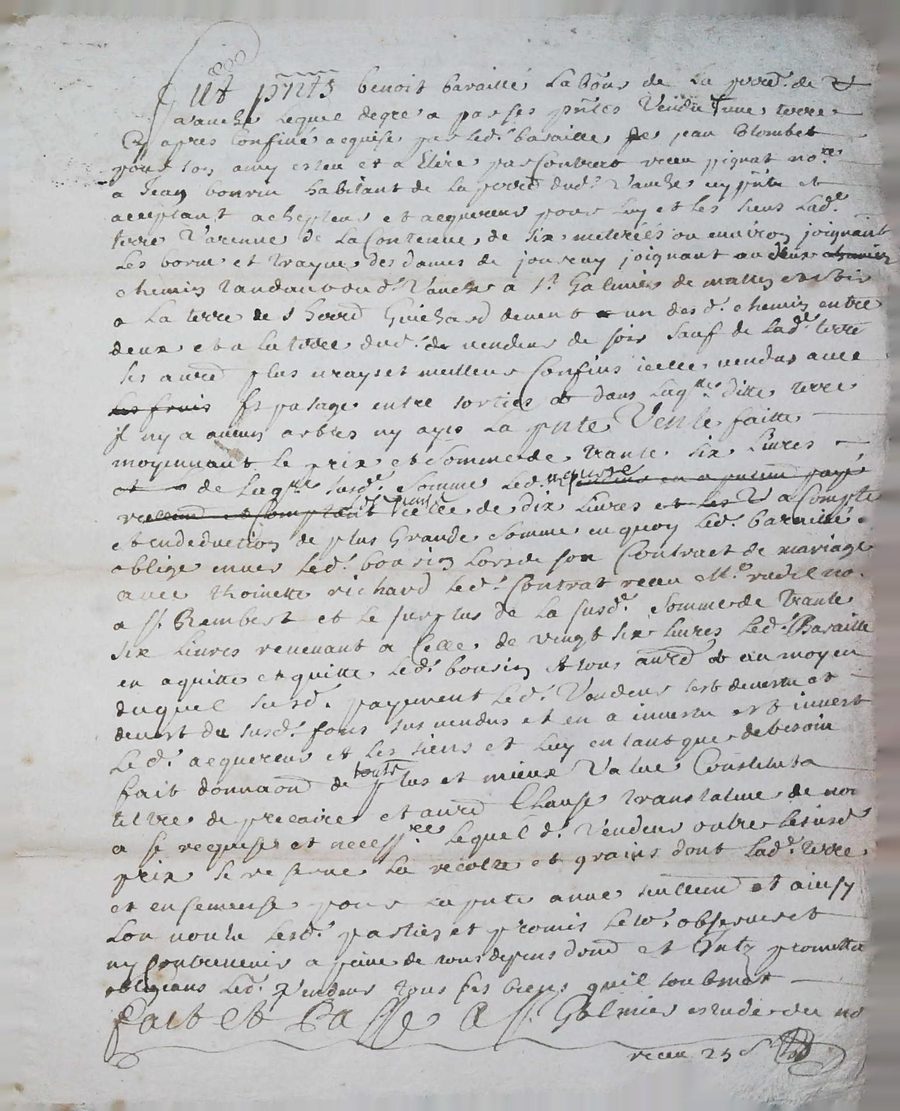 benoit baraillé Lab^rs de La parr^e de
Vauche Lequel degre a passes p^ntes Vendu Une terre
Cy apres Confiné acquise par led^t baraille de jean Colombet
pour son amy esleu et a Elire par Contract receu pignat no^re
a Jean bonsin habitant de La parr^e dud^t Vauche cy p^nt et
aceptant achepteur et acquereur pour Luy et les siens Lad^e
terre Varenne de La Contenue de six meterées ou environ joignant
Les borne et traynes des dames de jourcey joignant au deux chemin
chemin tandant dud^t Vauche a S^t Galmier de matin et bis
a La terre de s^r Guichard devent un desd^t chemin entre
deux et a la terre dud^t vendeur de soir Sauf de Lad^e terre
ses aut^res plus vrays et meilleurs Confins icelle vendue avec
les fruis et pasage entre sorties dans Laq^lle ditte terre
il ny a aucun arbres ny ayes La p^nte Vente faitte
moyennant Le prix et Somme de trante six Livres
de Laq^lle susd^e somme Led^t
icelle de dix Livres a Compte
et en deduction de plus Grande Somme en quoy Led^t baraillé
oblige envers Led^t bonsin Lors de son Contract de mariage
avec thoinette richard Led^t Contrat receu M^e no^re
a S^t Rambert et le surplus de La susd^e Somme de trante
six Livres revenant a Celle de vingt six Livres Led^t Baraille
en a quitte et quitte Led^t bonsin et tous aut^res et au moyen
duquel susd^t payement Led^t Vendeur sest devestu et
devest du susd^t fons sus vendus et en a investu et invest
Led^t acquereur et les siens et Luy en tant que de besoin
fait donna^on de toute plus et mieux Value Constitu^on
tiltre de precaire et aut^res Clause translative de no
a se requises et necess^res Lequel d^t Vendeur outre Le susd^t
prix se reserve La recolte et grains dont Lad^e terre
est ensemensé pour La p^nte anné seullem^t et ainsy
Lon voulu Lesd^t parties et promis Le to^t observer et
ny Contrevenir a peine de tous depens dom^s et Intz promettant
obligeant Led^t Vendeur tous ses biens quil soubmet
fait et Passé a S^t Galmier estude du no
receu 25 s